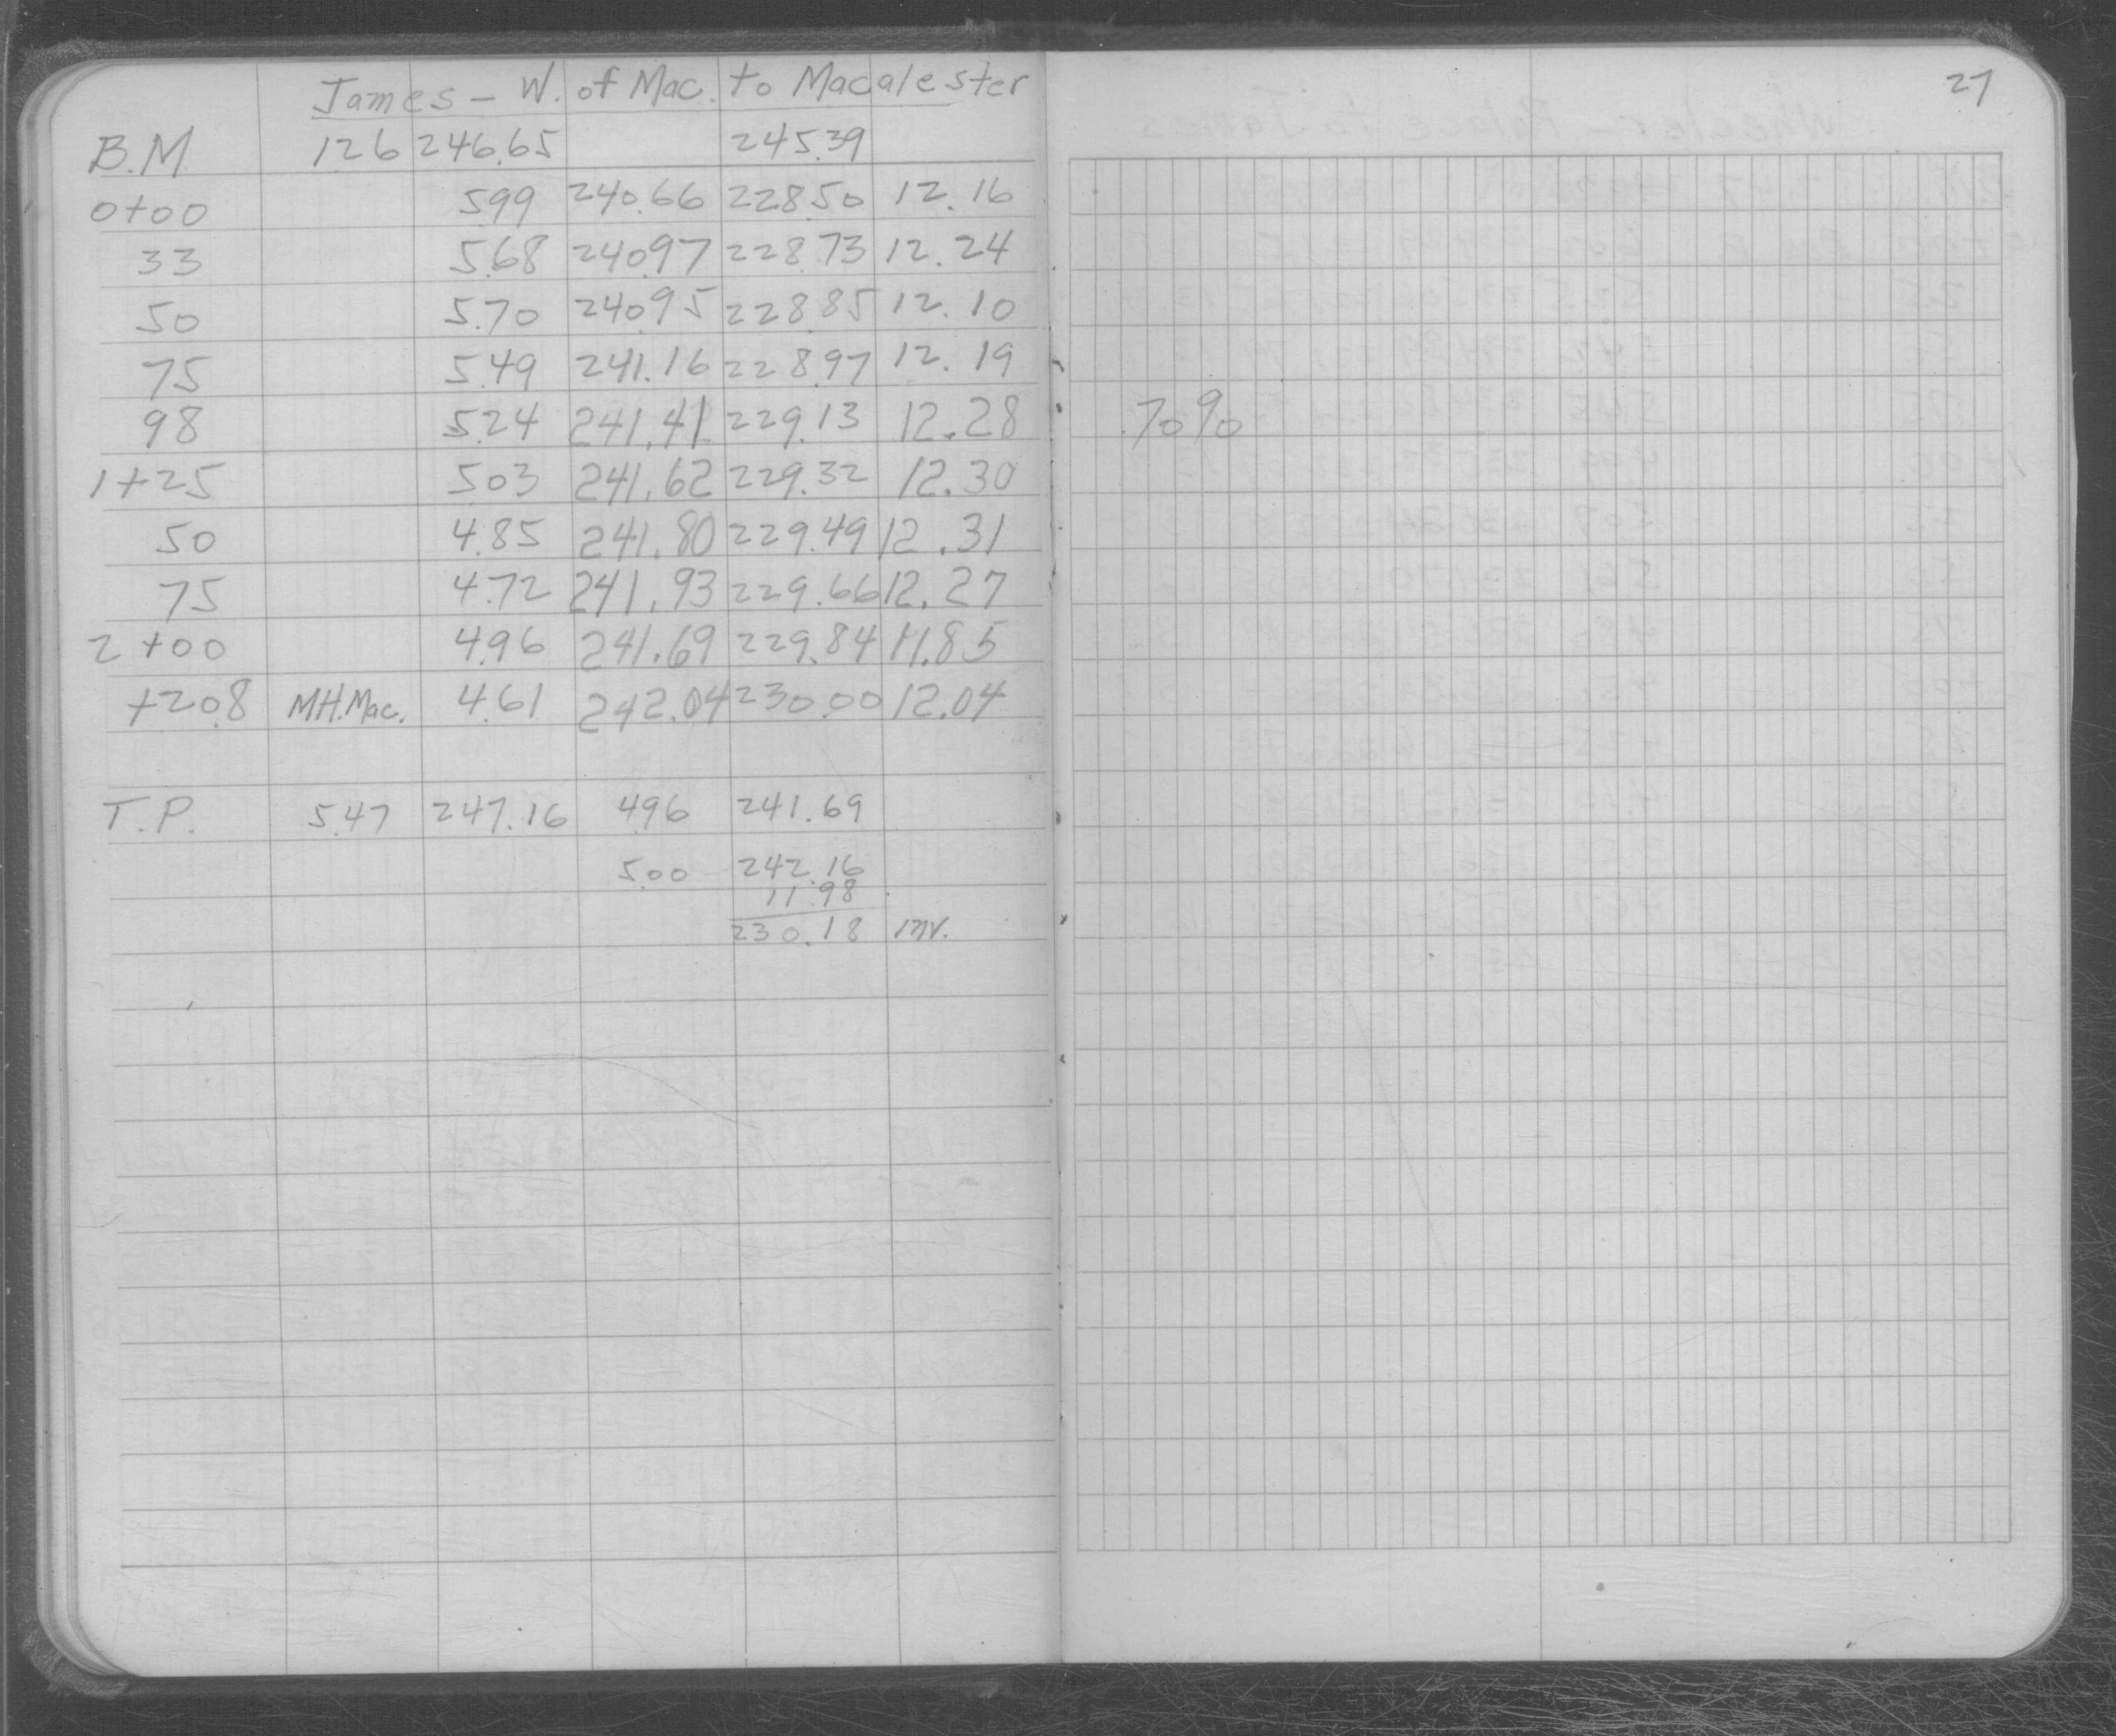 27
James - W. of Mac. to Macalester
B.M. 1.26 246.65 245.39
0+00 5.99 240.66 228.50 12.16
33 5.68 240.97 228.73 12.24
50 5.70 240.95 228.85 12.10
75 5.49 241.16 228.97 12.19
98 5.24 241.41 229.13 12.28 .70%
1+25 5.03 241.62 229.32 12.30
50 4.85 241.80 229.49 12.31
75 4.72 241.93 229.66 12.27
2+00 4.96 241.69 229.84 11.85
+20.8 MH.Mac. 4.61 242.04 230.00 12.04
T.P. 5.47 247.16 4.96 241.69
5.00 242.16
11.98
230.18 inv.